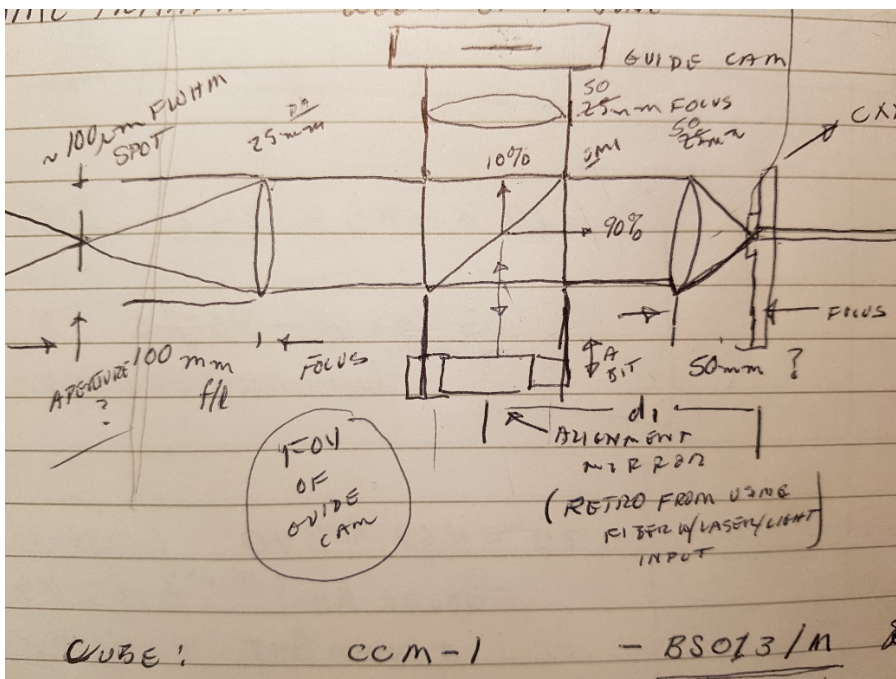 GUIDE CAM
~100µm FWHM
SPOT
DIA
25mm
50
25mm FOCUS
50
25mm
SM1
10%
90%
FOCUS
APERTURE
?
100 mm
f/l
FOCUS
A
BIT
50mm ?
d1
ALIGNMENT
MIRROR
(RETRO FROM USING
FIBER W/LASER/LIGHT
INPUT)
FOV
OF
GUIDE
CAM
CUBE: CCM-1 - BS013/M